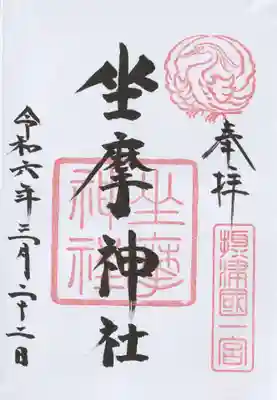 奉拝
摂津國一宮
坐摩神社
坐摩神社
令和六年三月二十二日